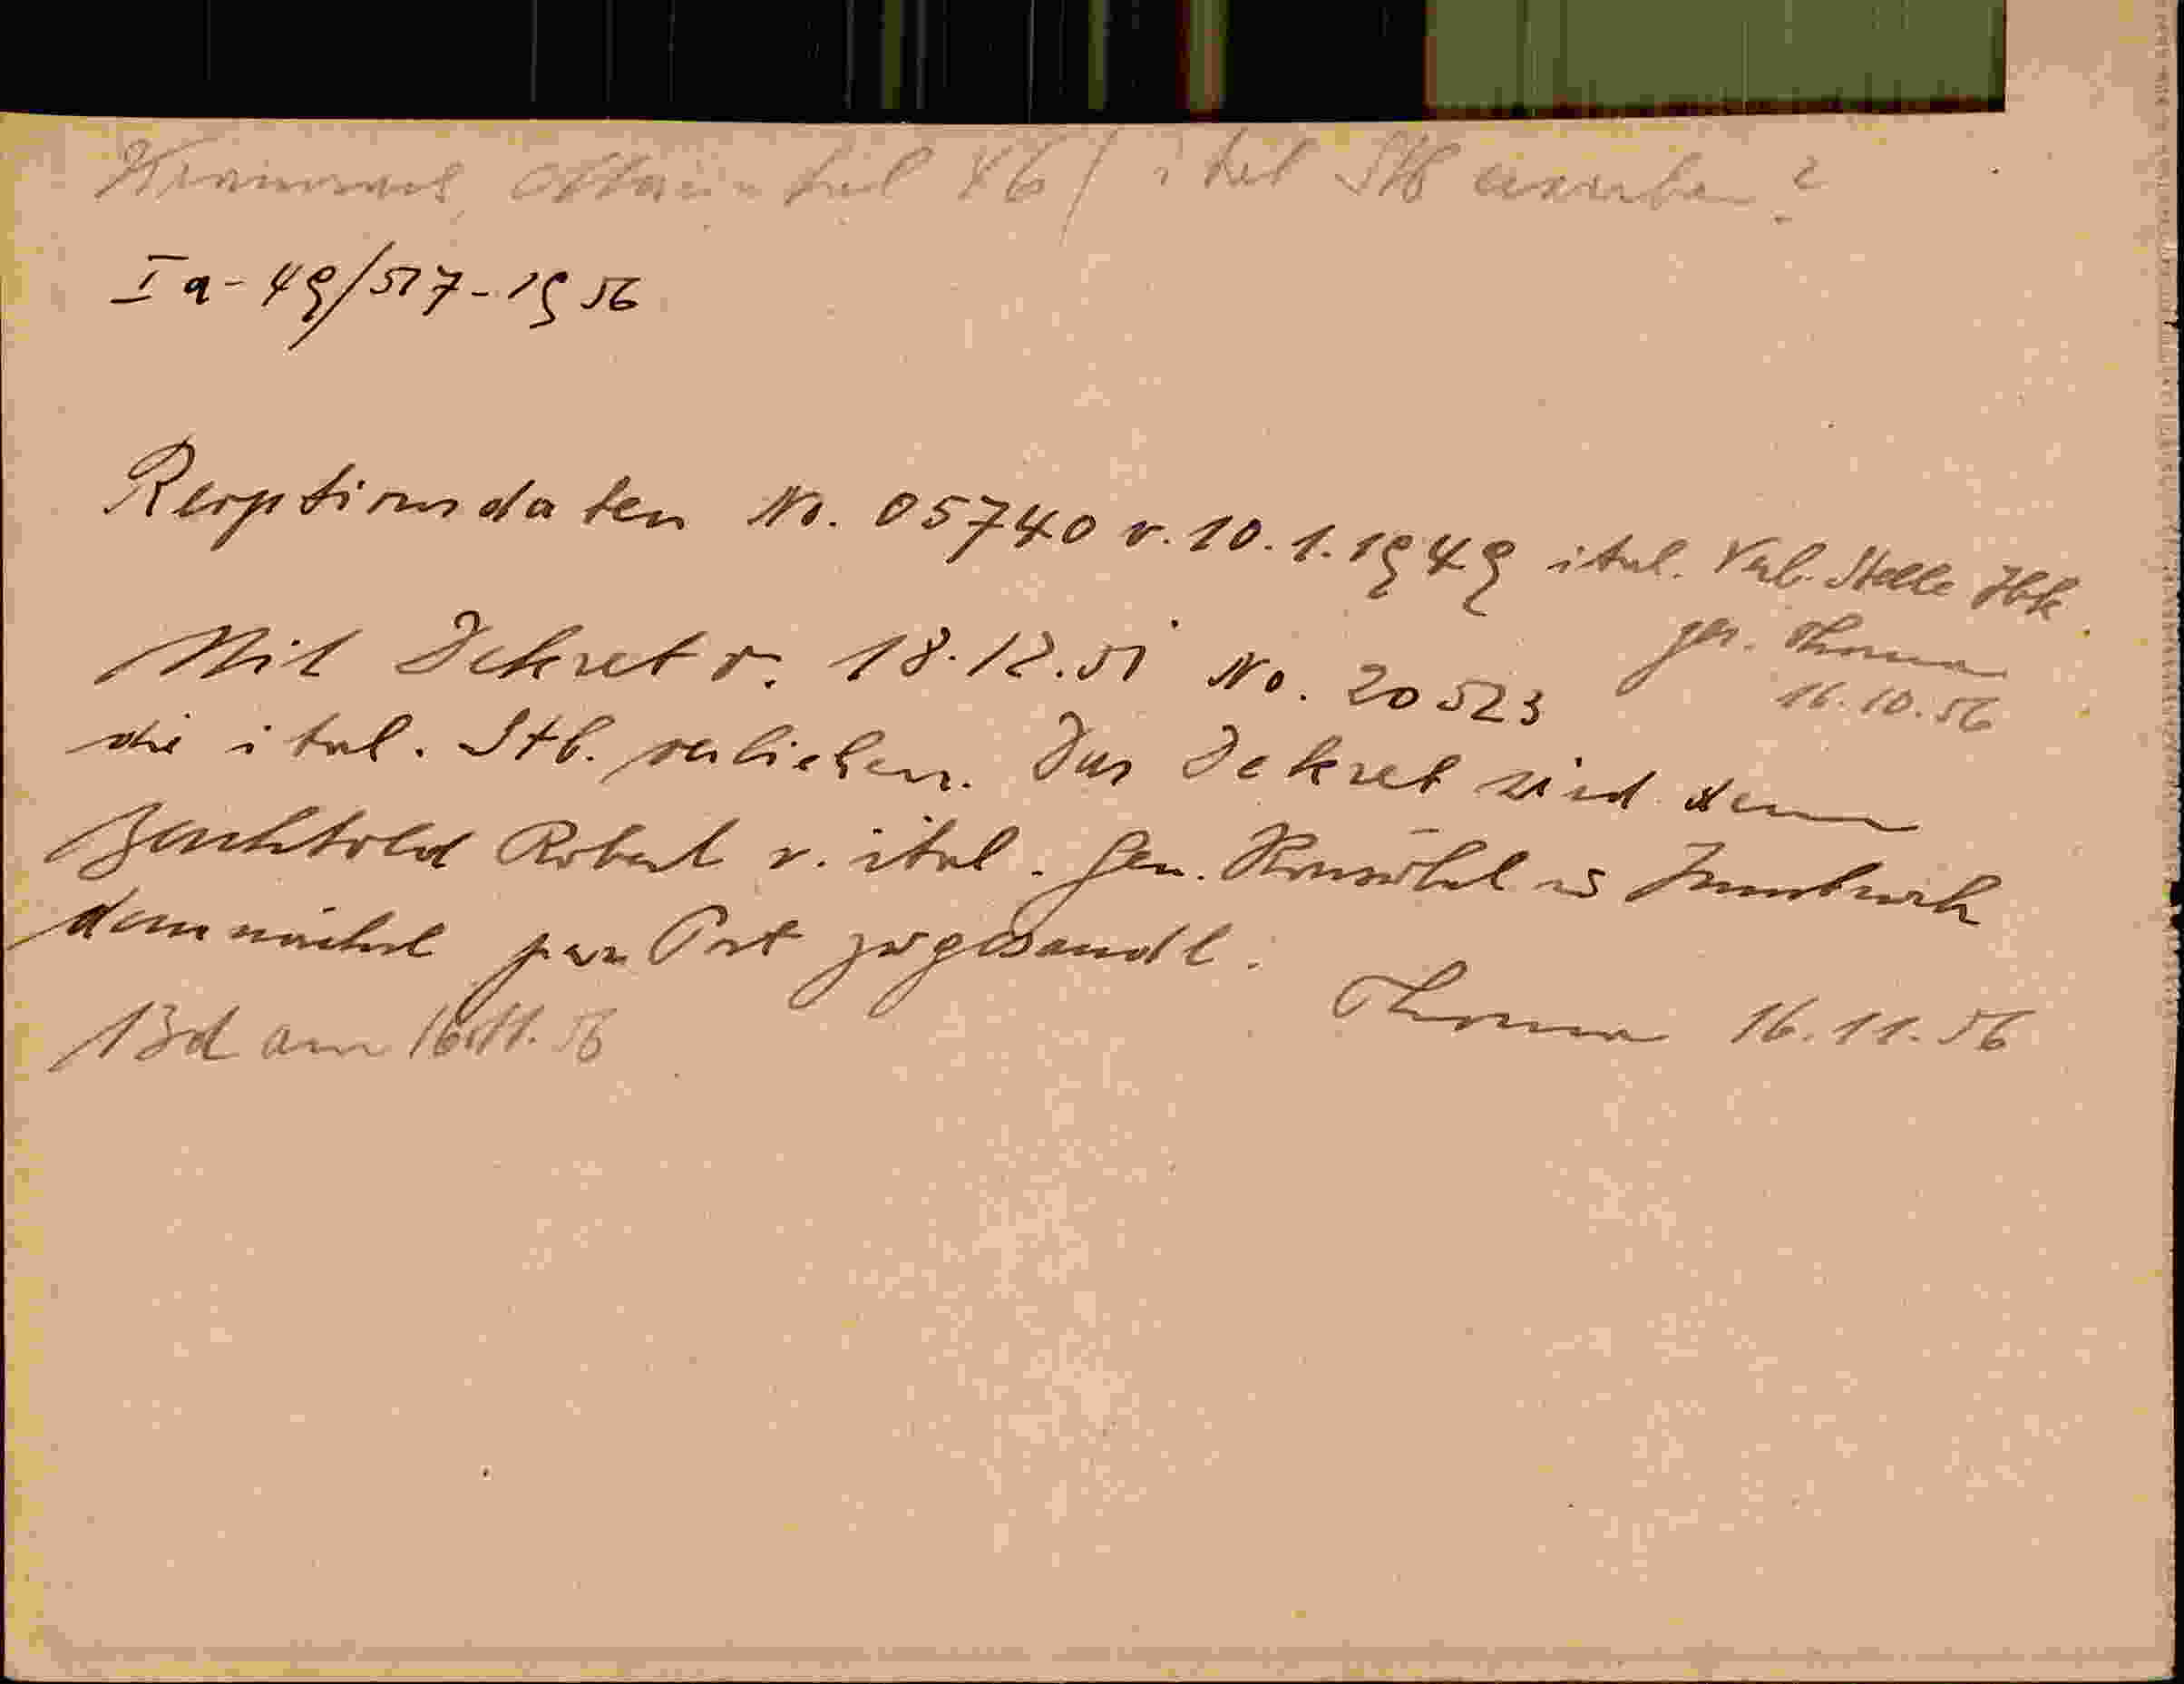 ital Stb erworben?
I a - 49/517 - 1956
Reoptionsdaten No. 05740 v. 10.1.1949 ital. Verb. Stelle Ibk.
gez. Thoma
16.10.56
Mit Dekret v. 18.12.51 No. 20523
die ital. Stb. verliehen. Das Dekret wird dem
Bachtold Robert v. ital. Gen. Konsulat Innsbruck
demnächst per Post zugesandt.
Thoma 16.11.56
am 16.11.56